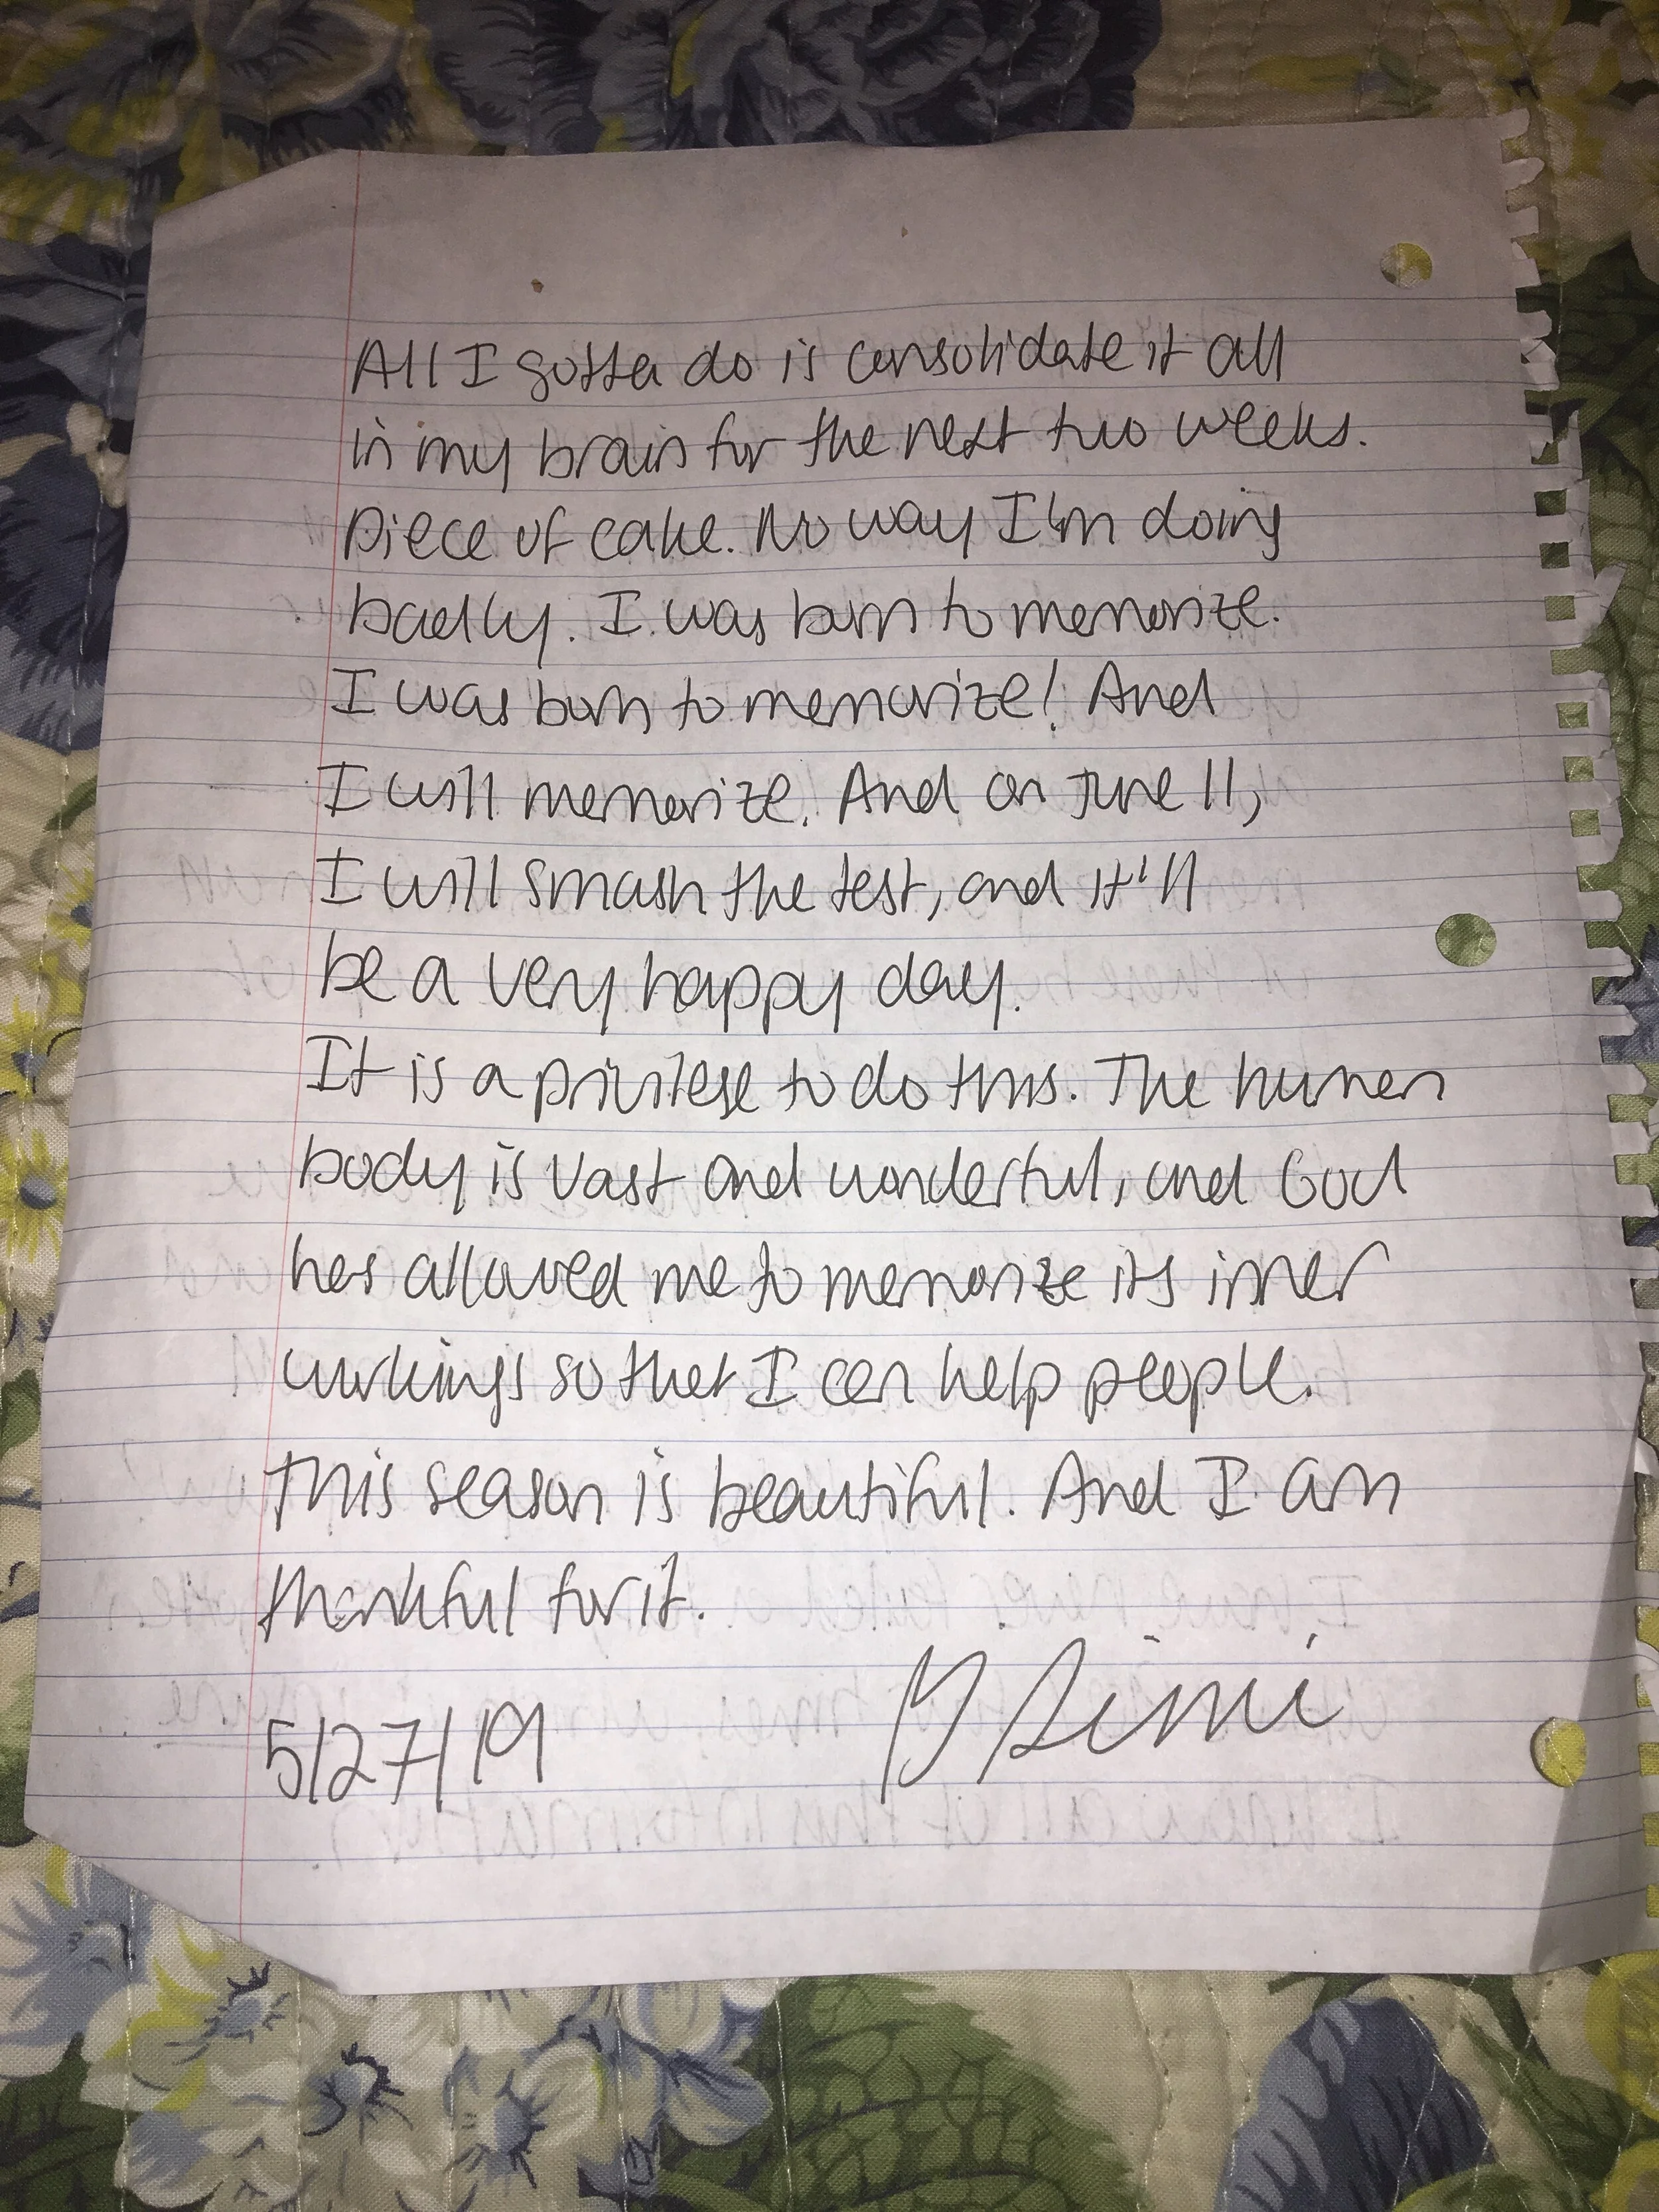 All I gotta do is consolidate it all
in my brain for the next two weeks.
Piece of cake. No way I'm doing
badly. I was born to memorize.
I was born to memorize! And
I will memorize. And on June 11,
I will smash the test, and it'll
be a very happy day.
It is a privilege to do this. The human
body is vast and wonderful, and God
has allowed me to memorize its inner
workings so that I can help people.
This season is beautiful. And I am
thankful for it.
5/27/19